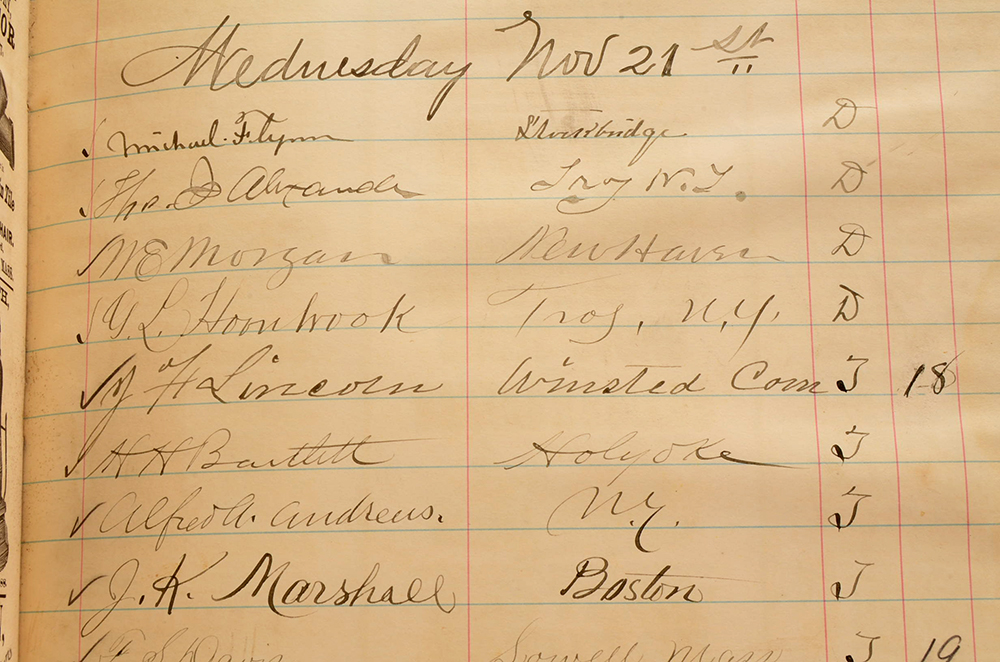 Wednesday Nov 21st
Michael Flynn Stockbridge D
Tho. J Alexander Troy N.Y. D
W E Morgan New Haven D
L. Hornbrook Troy, N.Y. D
F Lincoln Winsted Conn T 18
H H Bartlett Holyoke T
Alfred A. Andrews. N.Y. T
J. K. Marshall Boston T
F S Davis Lowell Mass T 19